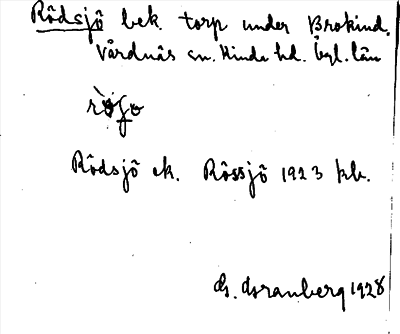 Rödsjö bek. torp under Brokind,
Vårdnäs sn. Hinda hd. Ögl. län
Rödsjö ek. Rössjö 1923 kb.
G. Granberg 1928